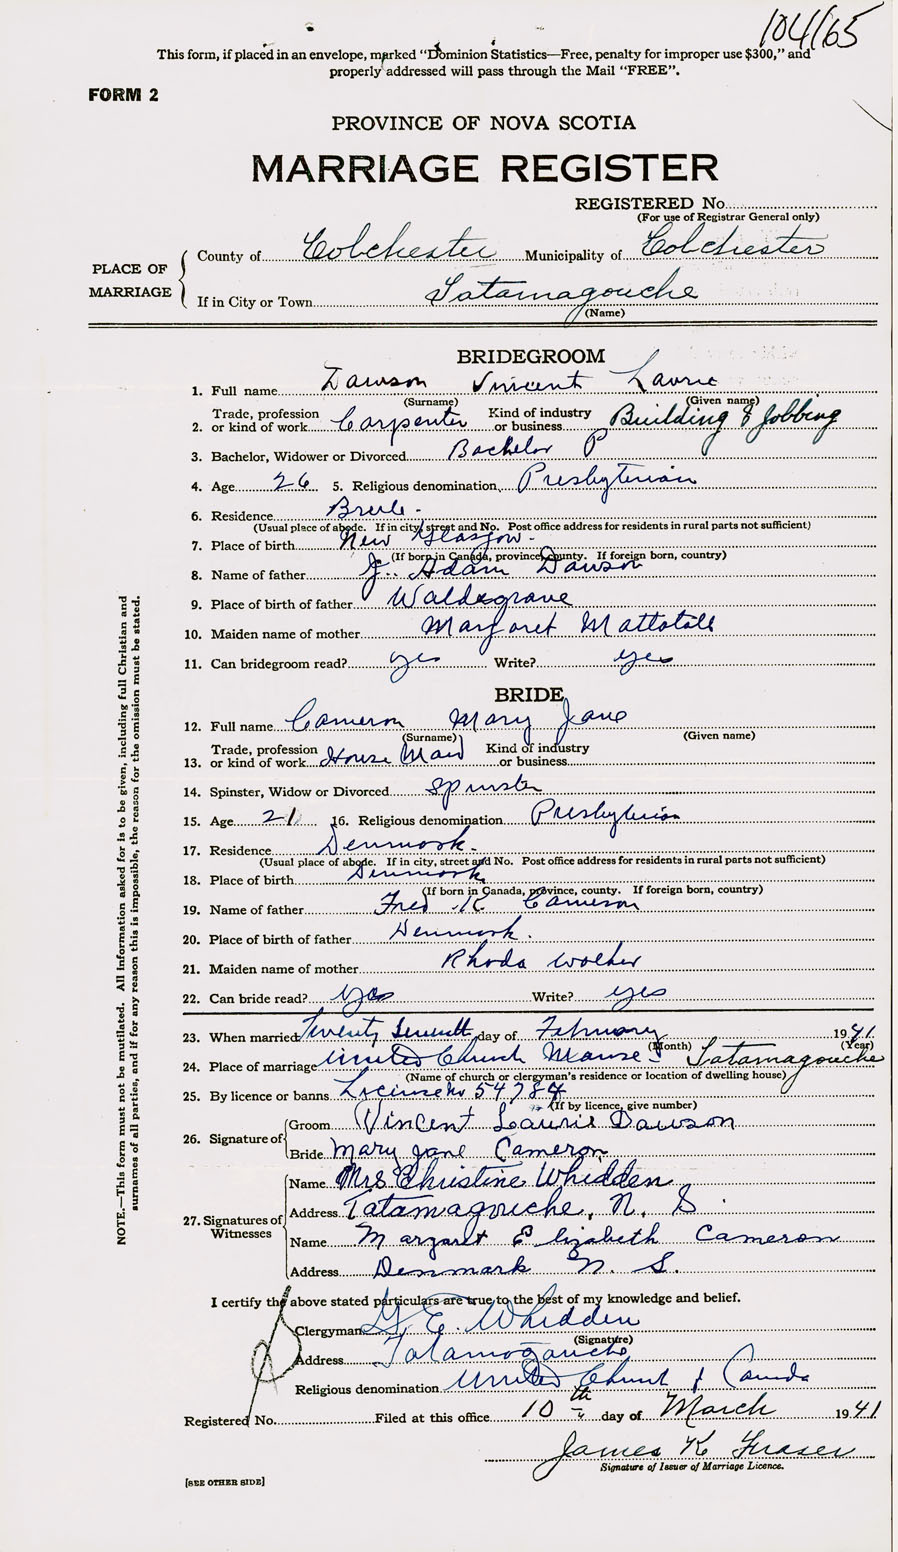 104165
This form, if placed in an envelope, marked "Dominion Statistics—Free, penalty for improper use $300," and
properly addressed will pass through the Mail "FREE".
FORM 2
PROVINCE OF NOVA SCOTIA
MARRIAGE REGISTER
REGISTERED No.
(For use of Registrar General only)
PLACE OF MARRIAGE
County of Colchester Municipality of Colchester
If in City or Town Tatamagouche
(Name)
BRIDEGROOM
1. Full name Dawson Vincent Laurie
(Surname) (Given name)
2. Trade, profession or kind of work Carpenter Kind of industry or business Building & Jobbing
3. Bachelor, Widower or Divorced Bachelor P
4. Age 26 5. Religious denomination Presbyterian
6. Residence Brule -
(Usual place of abode. If in city, street and No. Post office address for residents in rural parts not sufficient)
7. Place of birth New Glasgow -
(If born in Canada, province, county. If foreign born, country)
8. Name of father J. Adam Dawson
9. Place of birth of father Waldegrave
10. Maiden name of mother Margaret Mattatall
11. Can bridegroom read? yes Write? yes
BRIDE
12. Full name Cameron Mary Jane
(Surname) (Given name)
13. Trade, profession or kind of work House Maid Kind of industry or business
14. Spinster, Widow or Divorced Spinster
15. Age 21 16. Religious denomination Presbyterian
17. Residence Denmark -
(Usual place of abode. If in city, street and No. Post office address for residents in rural parts not sufficient)
18. Place of birth Denmark
(If born in Canada, province, county. If foreign born, country)
19. Name of father Fred K Cameron
20. Place of birth of father Denmark.
21. Maiden name of mother Rhoda Walker
22. Can bride read? yes Write? yes
23. When married Twenty Seventh day of February 1941
(Month) (Year)
24. Place of marriage United Church Manse - Tatamagouche
(Name of church or clergyman's residence or location of dwelling house)
25. By licence or banns License No 54784
(If by licence, give number)
26. Signature of
Groom Vincent Laurie Dawson
Bride Mary Jane Cameron
27. Signatures of Witnesses
Name Mrs. Christine Whidden
Address Tatamagouche, N. S.
Name Margaret Elizabeth Cameron
Address Denmark N. S.
I certify the above stated particulars are true to the best of my knowledge and belief.
Clergyman G. E. Whidden
(Signature)
Address Tatamagouche
Religious denomination United Church of Canada
Registered No. Filed at this office 10th day of March 1941
James K Fraser
Signature of Issuer of Marriage Licence.
[SEE OTHER SIDE]
NOTE.—This form must not be mutilated. All information asked for is to be given, including full Christian and
surnames of all parties, and if for any reason this is impossible, the reason for the omission must be stated.